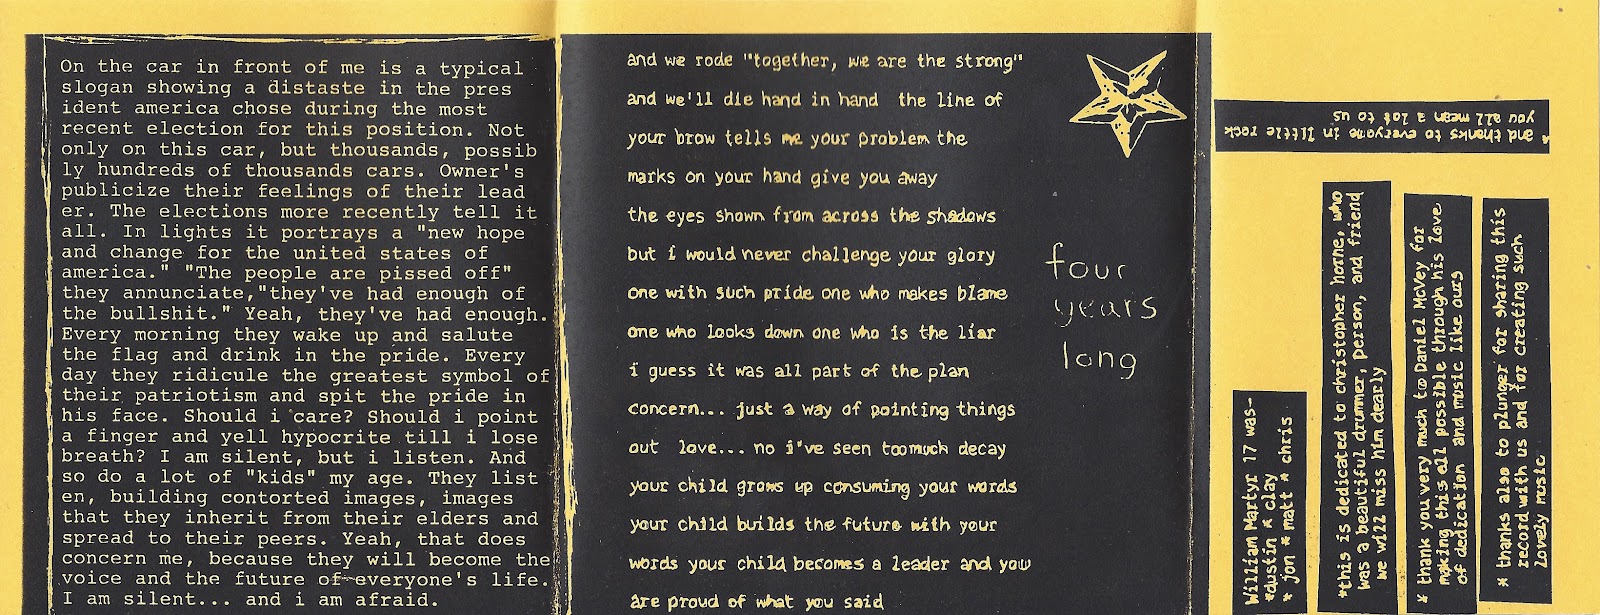 On the car in front of me is a typical
slogan showing a distaste in the pres
ident america chose during the most
recent election for this position. Not
only on this car, but thousands, possib
ly hundreds of thousands cars. Owner's
publicize their feelings of their lead
er. The elections more recently tell it
all. In lights it portrays a "new hope
and change for the united states of
america." "The people are pissed off"
they annunciate,"they've had enough of
the bullshit." Yeah, they've had enough.
Every morning they wake up and salute
the flag and drink in the pride. Every
day they ridicule the greatest symbol of
their patriotism and spit the pride in
his face. Should i care? Should i point
a finger and yell hypocrite till i lose
breath? I am silent, but i listen. And
so do a lot of "kids" my age. They list
en, building contorted images, images
that they inherit from their elders and
spread to their peers. Yeah, that does
concern me, because they will become the
voice and the future of everyone's life.
I am silent... and i am afraid.
and we rode "together, we are the strong"
and we'll die hand in hand the line of
your brow tells me your problem the
marks on your hand give you away
the eyes shown from across the shadows
but i would never challenge your glory
one with such pride one who makes blame
one who looks down one who is the liar
i guess it was all part of the plan
concern... just a way of pointing things
out love... no i've seen toomuch decay
your child grows up consuming your words
your child builds the future with your
words your child becomes a leader and you
are proud of what you said
four
years
long
* and thanks to everyone in little rock
you all mean a lot to us
William Martyr 17 was-
*dustin * clay
* jon * matt * chris
*this is dedicated to christopher horne, who
was a beautiful drummer, person, and friend
we will miss him dearly
* thank you very much to Daniel McVey for
making this all possible through his love
of dedication and music like ours
* thanks also to plunger for sharing this
record with us and for creating such
lovely music